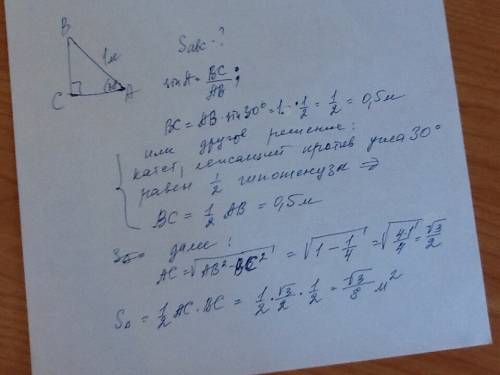 B
1м
C
30°
A
S авс - ?
sin A = BC/AB ;
BC = AB · sin 30° = 1 · 1/2 = 1/2 = 0,5 м
или другое решение:
катет, лежащий против угла 30°
равен 1/2 гипотенузы ⇒
BC = 1/2 AB = 0,5 м
далее :
AC = √(AB² - BC²) = √(1 - 1/4) = √((4-1)/4) = √3/2
S△ = 1/2 AC · BC = 1/2 · √3/2 · 1/2 = √3/8 м²